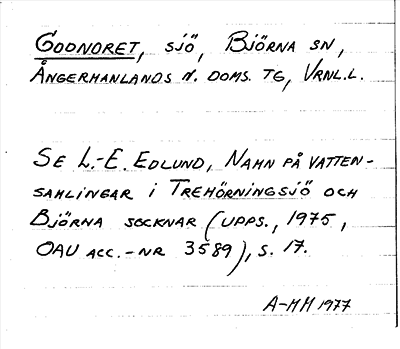 GODNORET, SJÖ, BJÖRNA SN,
ÅNGERMANLANDS N. DOMS. TG, VRNL.L.
SE L.-E. EDLUND, NAMN PÅ VATTEN-
SAMLINGAR I TREHÖRNINGSJÖ OCH
BJÖRNA SOCKNAR (UPPS., 1975,
OAU ACC.-NR 3589), S. 17.
A-MH 1977